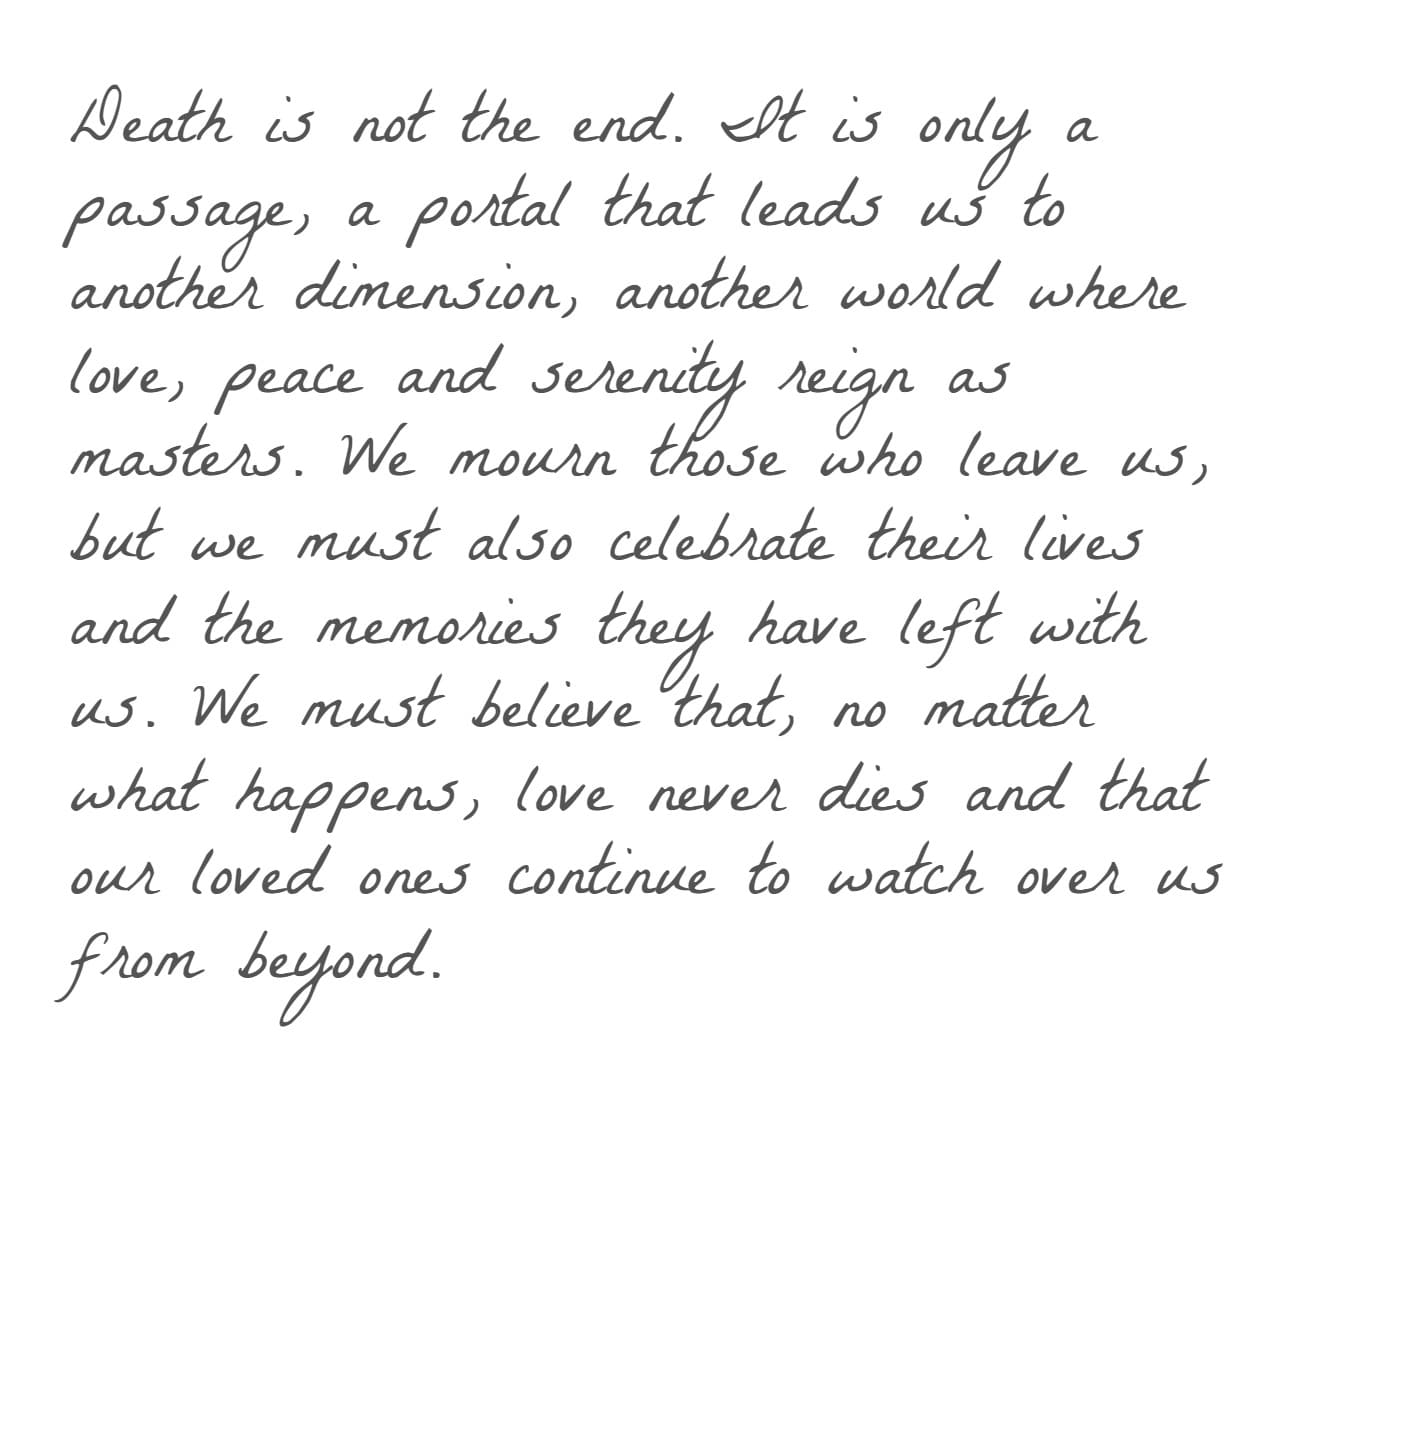 Death is not the end. It is only a
passage, a portal that leads us to
another dimension, another world where
love, peace and serenity reign as
masters. We mourn those who leave us,
but we must also celebrate their lives
and the memories they have left with
us. We must believe that, no matter
what happens, love never dies and that
our loved ones continue to watch over us
from beyond.